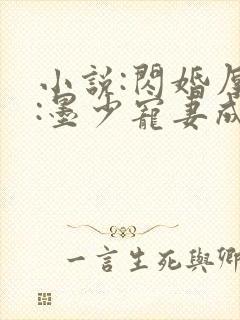 小說:閃婚
:墨少寵妻成
一言生死與卿